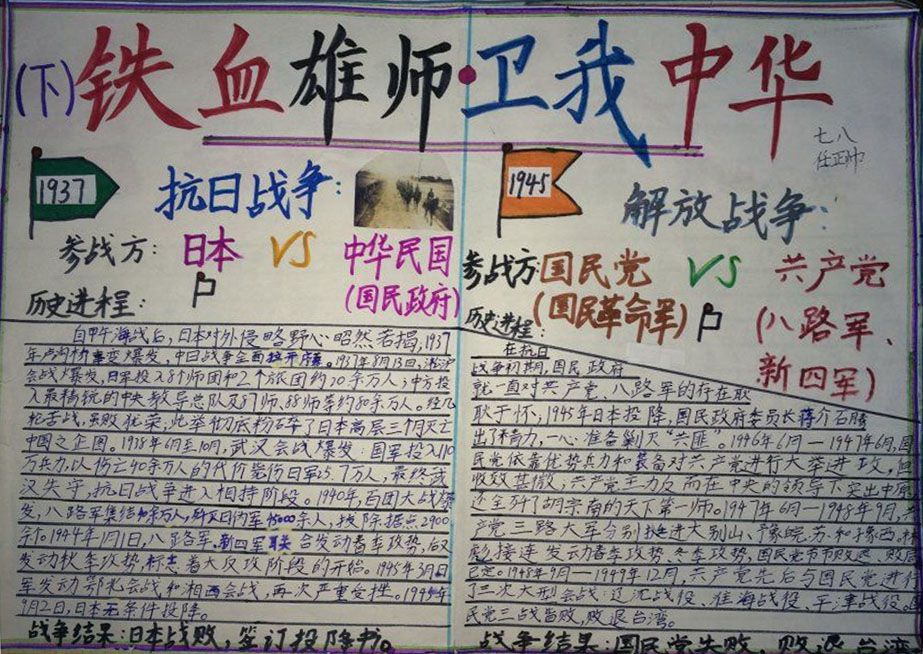 (下)铁血雄师·卫我中华
七八
任正帅
1937
抗日战争:
参战方: 日本 VS 中华民国
(国民政府)
历史进程:
自甲午海战后,日本对外侵略野心昭然若揭,1937
年卢沟桥事变爆发,中日战争全面拉开序幕。1937年8月13日,淞沪
会战爆发,日军投入8个师团和2个旅团约20余万人;中方投
入最精锐的中央教导总队及87师,88师等约80余万人。经几
轮苦战,虽败犹荣,此举彻底粉碎了日本高层三个月灭亡
中国之企图。1938年6月至10月,武汉会战爆发:国军投入110
万兵力,以伤亡40余万人的代价毙伤日军25.7万人,最终武
汉失守,抗日战争进入相持阶段。1940年,百团大战爆
发,八路军集结40余万人,歼灭日伪军45000余人,拔除据点2900
余个1944年1月1日,八路军、新四军联合发动春季攻势,后又
发动秋季攻势,标志着大反攻阶段的开始。1945年3月日
军发动鄂北会战和湘西会战,再次严重受挫。194年
9月2日,日本无条件投降。
战争结果:日本战败,签订投降书。
1945
解放战争:
参战方:国民党 VS 共产党
(国民革命军) (八路军、
新四军)
历史进程:
在抗日
战争初期,国民政府
就一直对共产党、八路军的存在耿
耿于怀,1945年日本投降,国民政府委员长蒋介石腾
出了精力,一心准备剿灭“共匪”。1946年6月—1947年6月,国
民党依靠优势兵力和装备对共产党进行大举进攻,但
收效甚微;共产党主力反而在中央的领导下突出中原
还全歼了胡宗南的天下第一师。1947年6月—1948年9月,共
产党三路大军分别挺进大别山、豫皖苏和豫西,林
彪接连发动春季攻势、冬季攻势,国民党节节败退,败局
已定。1948年9月—1949年12月,共产党先后与国民党进行
了三次大型会战:辽沈战役、淮海战役、平津战役。国
民党三战皆败,败退台湾。
战争结果:国民党失败,败退台湾